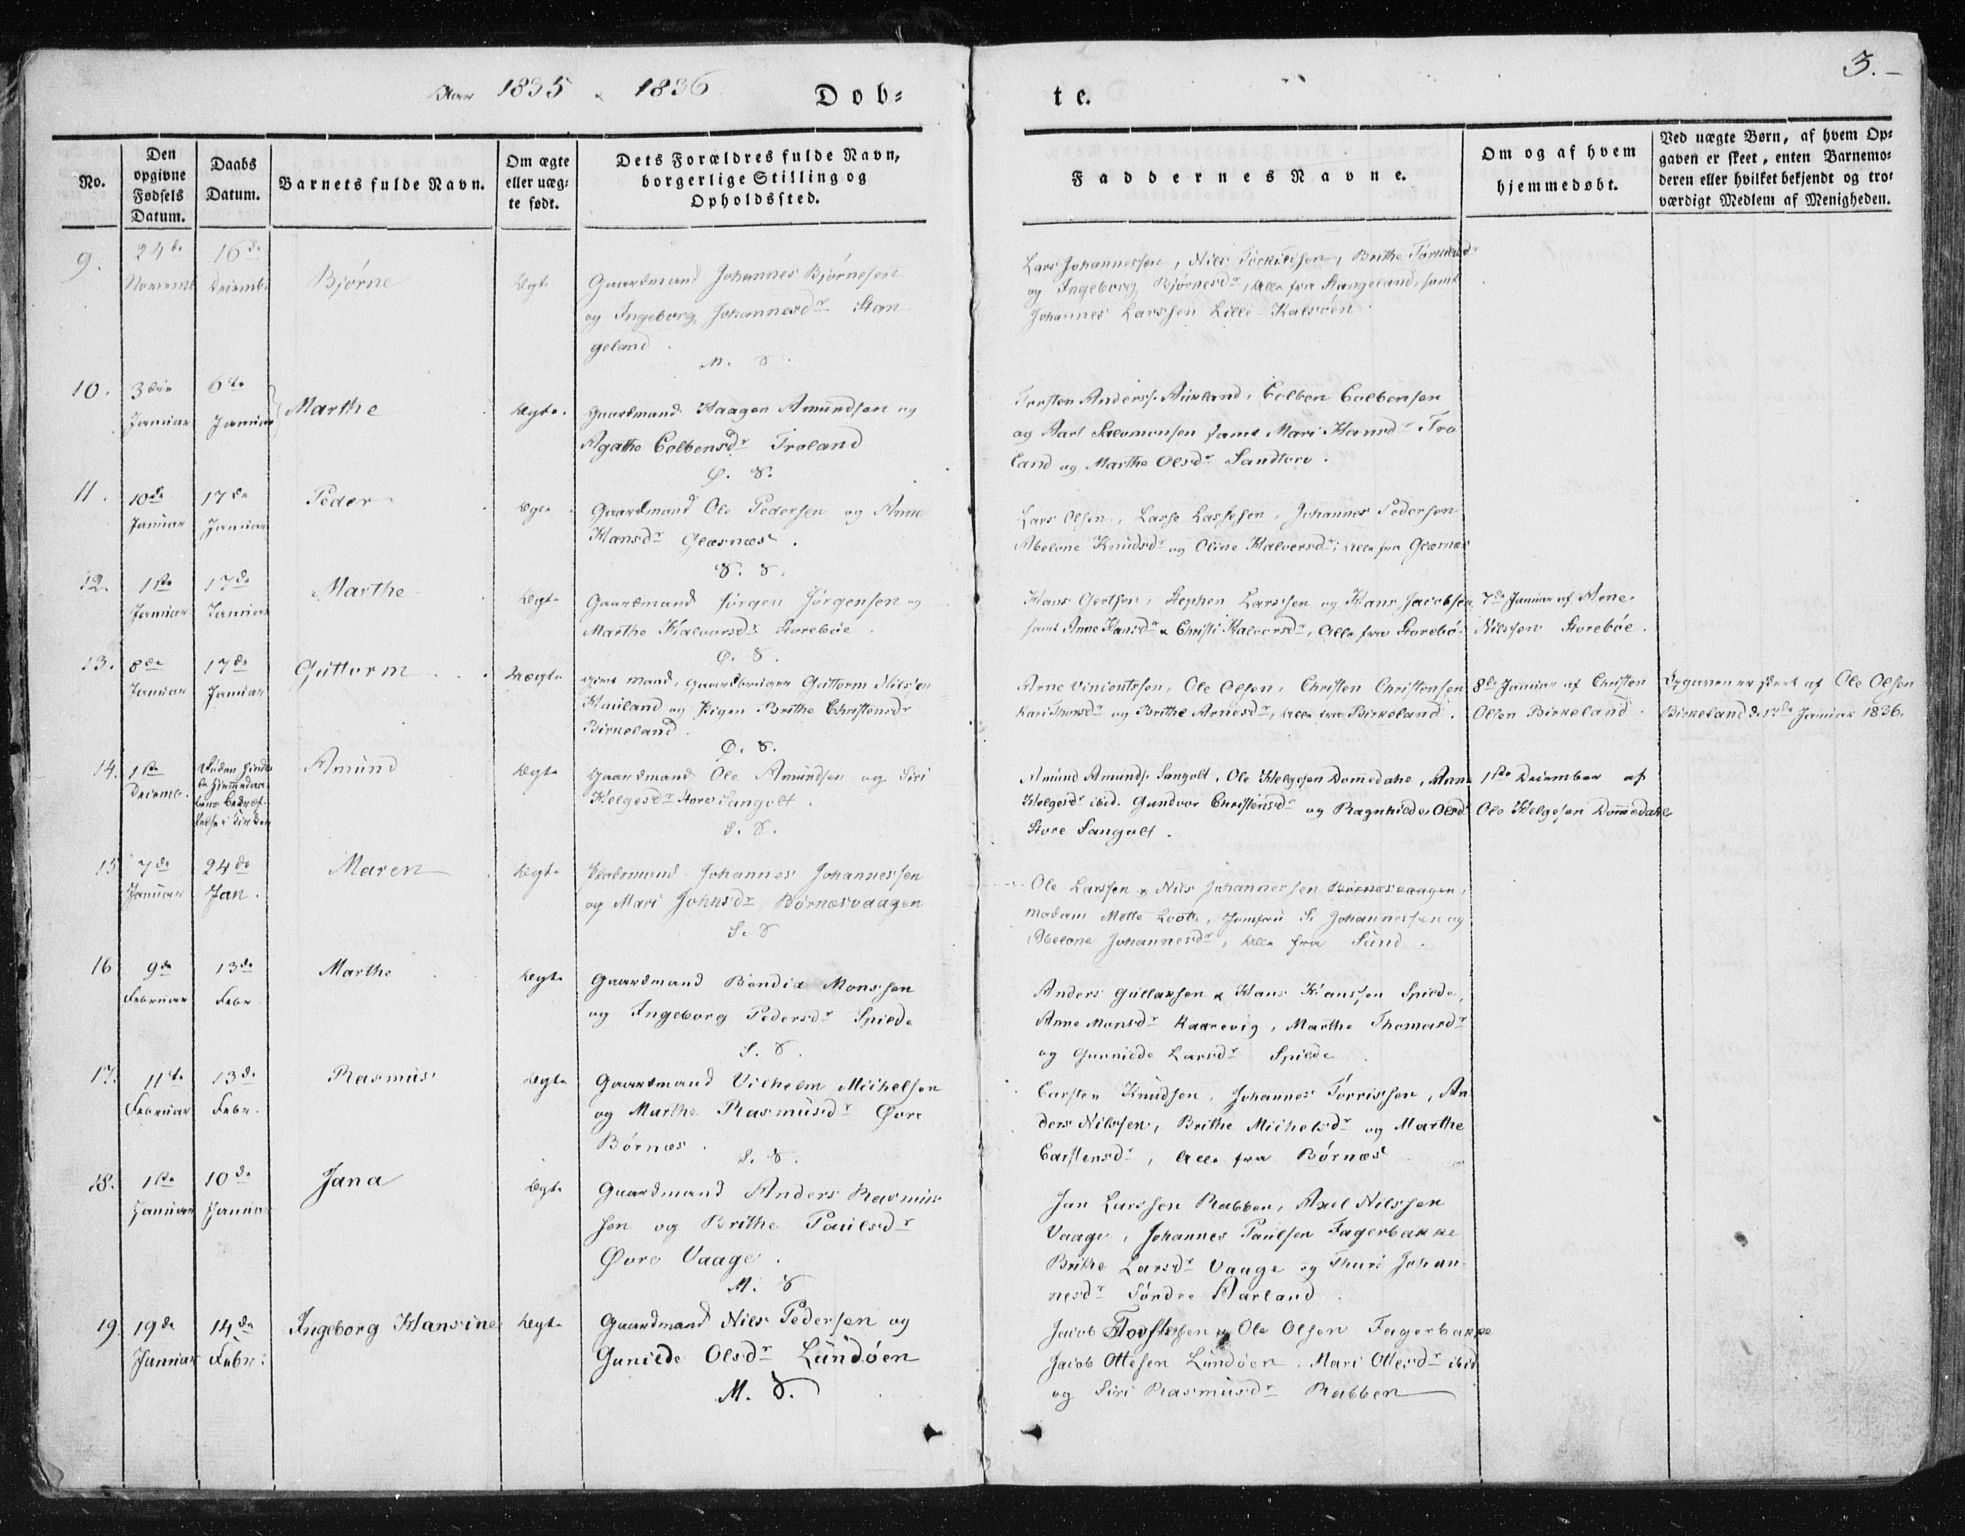 Aar 1835 & 1836
Dob=
te.
3.-
No.
Den opgivne Fødsels Datum.
Daabs Datum.
Barnets fulde Navn.
Om ægte eller uæg= te født.
Dets Forældres fulde Navn, borgerlige Stilling og Opholdssted.
Faddernes Navne.
Om og af hvem hjemmedøbt.
Ved uægte Børn, af hvem Op= gaven er skeet, enten Barnemo= deren eller hvilket bekjendt og tro= værdigt Medlem af Menigheden.
9. 24de Novemb 16de Decemb. Bjørne Ægte
Gaardmand Johannes Bjørnesen
og Ingeborg Johannesdr Stan
geland.
M. S.
Lars Johannessen, Nils Torkildsen, Brithe Torkildsdr
og Ingeborg Bjørnesdr, Alle fra Stangeland, samt
Johannes Larssen Lille Kalsøen.
10. 3die Januar 6te Januar Marthe Ægte.
Gaardmand Haagen Amundsen og
Agathe Colbensdr Troland
Ø. S.
Torsten Anderss. Aurland, Colben Colbensen
og Aart Salomonsen samt Mari Hansdr Tro
land og Marthe Olsdr Sandtorv.
11. 10de Januar 17de Januar Peder Ægte.
Gaardmand Ole Pedersen og Anne
Hansdr Glæsnæs.
S. S.
Lars Olsen, Lasse Lassesen, Johannes Pedersen
Abelone Knudsdr og Oline Halversdr; Alle fra Glæsnæs
12. 1ste Januar 17de Januar Marthe Ægte
Gaardmand Jørgen Jørgensen og
Marthe Halvorsdr Storebøe.
Ø. S.
Hans Gertsen, Stephen Larssen og Hans Jacobsen,
samt Anne Hansdr & Christi Halvorsdr, Alle fra Storebø.
7de Januar af Arne
Nilssen Storebøe.
13. 8de Januar 17de Januar Guttorm Uægte
Gift Mand, Gaardbruger Guttorm Nilsen
Hauland og Pigen Brithe Christensdr
Birkeland.
Ø. S.
Arne Vincentsen, Ole Olsen, Christen Christensen
Kari Thorsdr og Brithe Arnesdr, Alle fra Birkeland.
8de Januar af Christen
Olsen Birkeland.
Opgaven er skeet af Ole Olsen
Birkeland d: 17de Januar 1836.
14. 1ste Decemb. Amund Ægte
Gaardmand Ole Amundsen og Siri
Helgesdr Store Sangolt.
S. S.
Amund Amunds. Sangolt, Ole Helgesen Domedahl, Anne
Helgesdr ibid. Gundvor Christensdr og Ragnhilde Olsdr
Store Sangolt.
1ste December af
Ole Helgesen Domedahl
15 7de Januar 24de Jan. Maren Ægte
Johannes Johannessen
og Mari Johnsdr Børnæsvaagen
S. S
Ole Larssen & Nils Johannessen Børnæsvaagen,
Madam Mette Looth, Jomfru S. Johannessen og
Abelone Johannesdr, Alle fra Sund.
16 9de Februar 13de Febr Marthe Ægte
Gaardmand Bendix Monssen
og Ingeborg Pedersdr Spilde
S. S.
Anders Gullaksen & Hans Hanssen Spilde,
Anne Monsdr Kaarevig, Marthe Thomasdr
og Gunnilde Larsdr Spilde
17. 11te Februar 13de Febr. Rasmus Ægte
Gaardmand Vilhelm Michelsen
og Marthe Rasmusdr Øvre
Børnæs.
S. S.
Carsten Knudsen, Johannes Torrissen, An
ders Nilssen, Brithe Michelsdr og Marthe
Carstensdr, Alle fra Børnæs
18. 1ste Januar 10de Januar Jana Ægte
Gaardmand Anders Rasmus
sen og Brithe Paulsdr
Øvre Vaage.
M. S
Jan Larssen Rabben, Axel Nilssen
Vaage, Johannes Paulsen Fagerbakke
Brithe Larsdr Vaage og Thuri Johan
nesdr Søndre Aarland.
19 19de Januar 14de Febr: Ingeborg Hansine Ægte
Gaardmand Nils Pedersen og
Gunilde Olsdr Lundøen
M. S.
Jacob Torstensen & Ole Olsen Fagerbakke
Jacob Ottesen Lundøen, Mari Ottesdr ibid
og Siri Rasmusdr Rabben